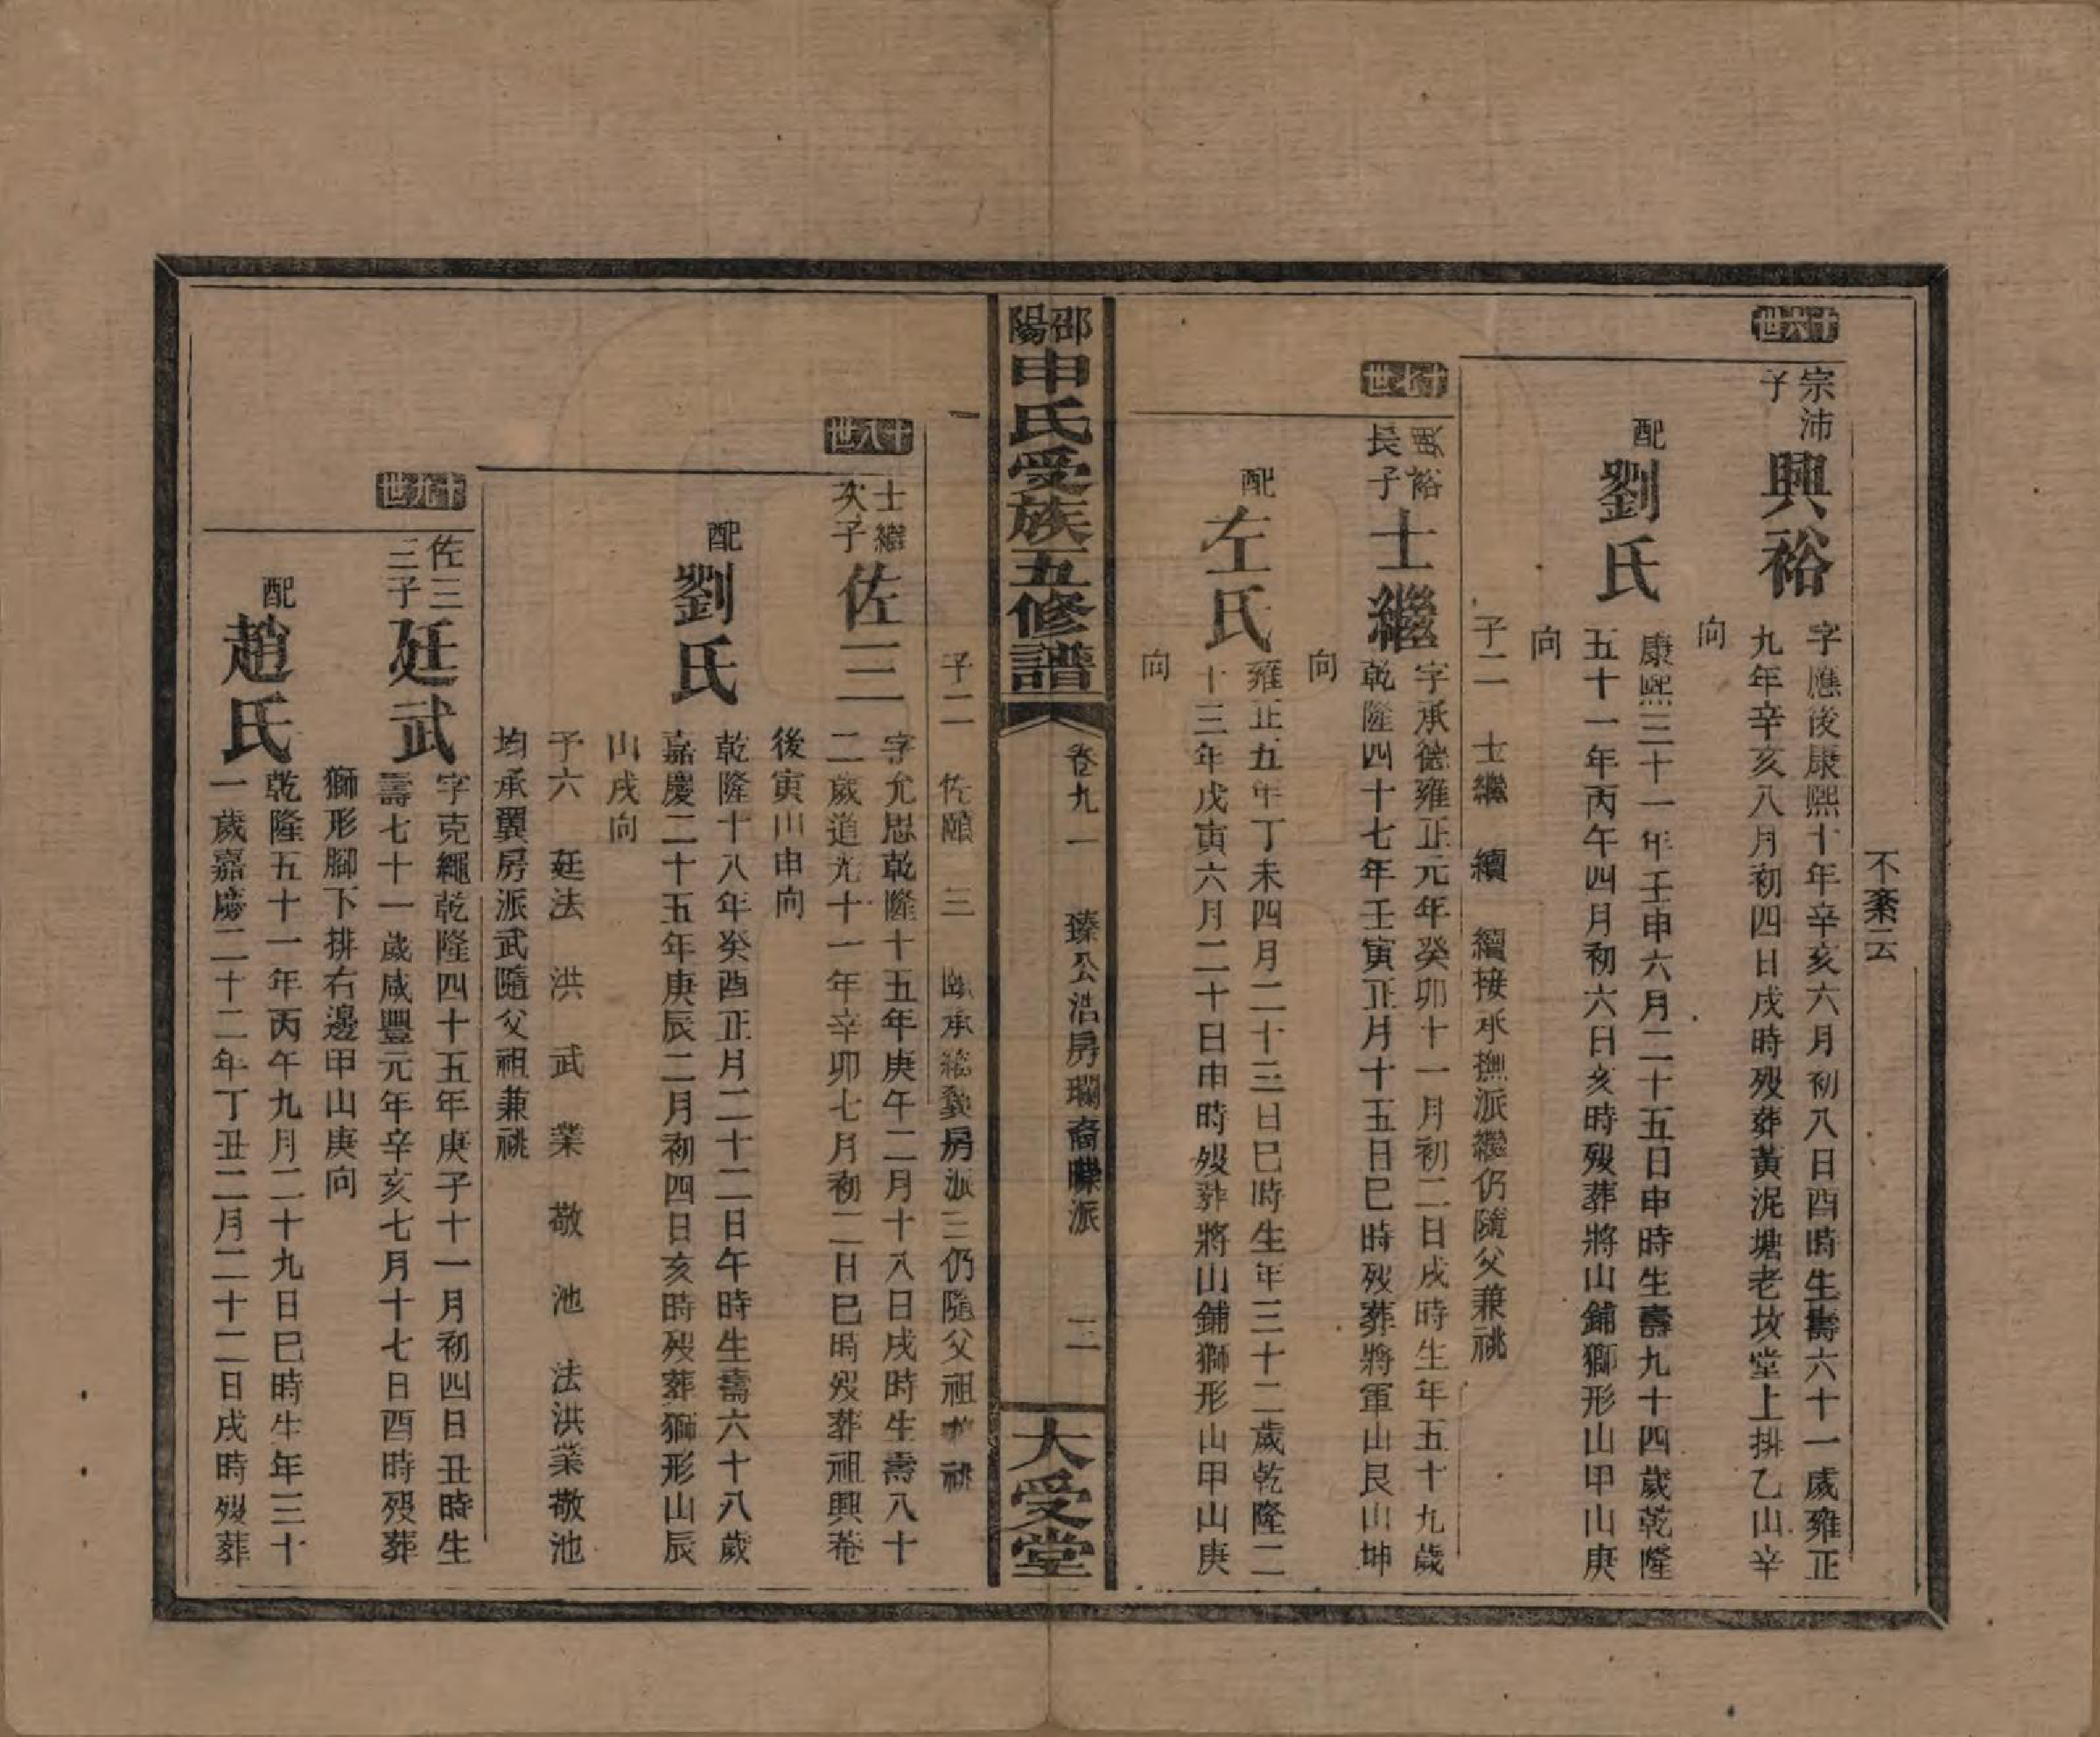 不紊云
十六世
宗沛
子
興裕
字應後康熙十年辛亥六月初八日酉時生壽六十一歲雍正
九年辛亥八月初四日戌時歿葬黃泥塘老坟堂上排乙山辛
向
配
劉氏
康熙三十一年壬申六月二十五日申時生壽九十四歲乾隆
五十一年丙午四月初六日亥時歿葬將山鋪獅形山甲山庚
向
子二 士繼 續 續接承撫派繼仍隨父兼祧
十七世
興裕
長子
士繼
字承德雍正元年癸卯十一月初二日戌時生年五十九歲
乾隆四十七年壬寅正月十五日巳時歿葬將軍山艮山坤
向
配
左氏
雍正五年丁未四月二十三日巳時生年三十二歲乾隆二
十三年戊寅六月二十日申時歿葬將山鋪獅形山甲山庚
向
邵陽
申氏受族五修譜
卷九一
臻公浩房瓓裔曔派
二
大受堂
子二 佐頤 三 承續房派三仍隨父祖兼祧
十八世
士繼
次子
佐三
字允思乾隆十五年庚午二月十八日戌時生壽八十
二歲道光十一年辛卯七月初二日巳時歿葬祖興菴
後寅山申向
配
劉氏
乾隆十八年癸酉正月二十二日午時生壽六十八歲
嘉慶二十五年庚辰二月初四日亥時歿葬獅形山辰
山戌向
子六 廷法 洪 武 業 敬 池 法洪業敬池
均承翼房派武隨父祖兼祧
十九世
佐三
三子
廷武
字克繩乾隆四十五年庚子十一月初四日丑時生
壽七十一歲咸豐元年辛亥七月十七日酉時歿葬
獅形腳下排右邊甲山庚向
配
趙氏
乾隆五十一年丙午九月二十九日巳時生年三十
一歲嘉慶二十二年丁丑二月二十二日戌時歿葬